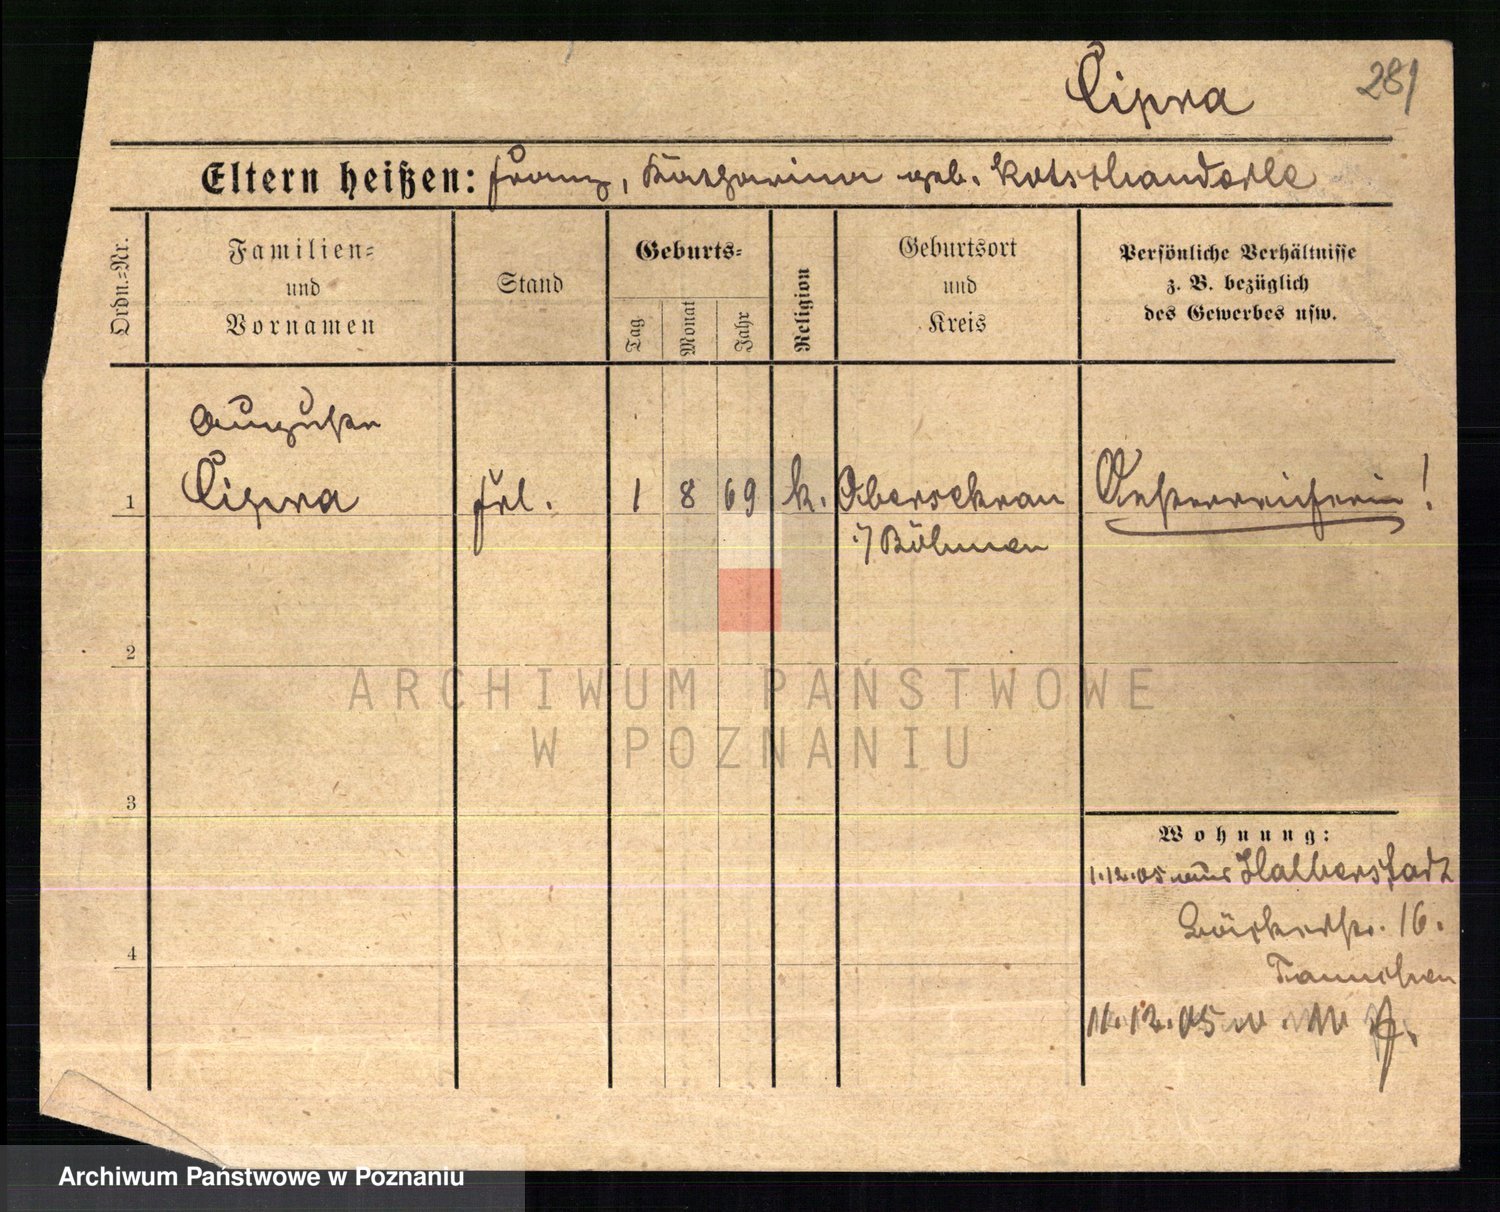 Cipra
281
Eltern heißen: Franz, Katharina geb. Kotschanderle
Ordn.-Nr.
Familien-
und
Vornamen
Stand
Geburts-
Tag
Monat
Jahr
Religion
Geburtsort
und
Kreis
Persönliche Verhältnisse
z. B. bezüglich
des Gewerbes usw.
Auguste
1 Cipra frl. 1 8 69 k. Oberschran Oesterreicherin!
i/ Böhmen
2
ARCHIWUM PAŃSTWOWE
W POZNANIU
3
Wohnung:
1.12.05 aus Halberstadt
Bäckerstr. 16.
4
11.12.05
Archiwum Państwowe w Poznaniu